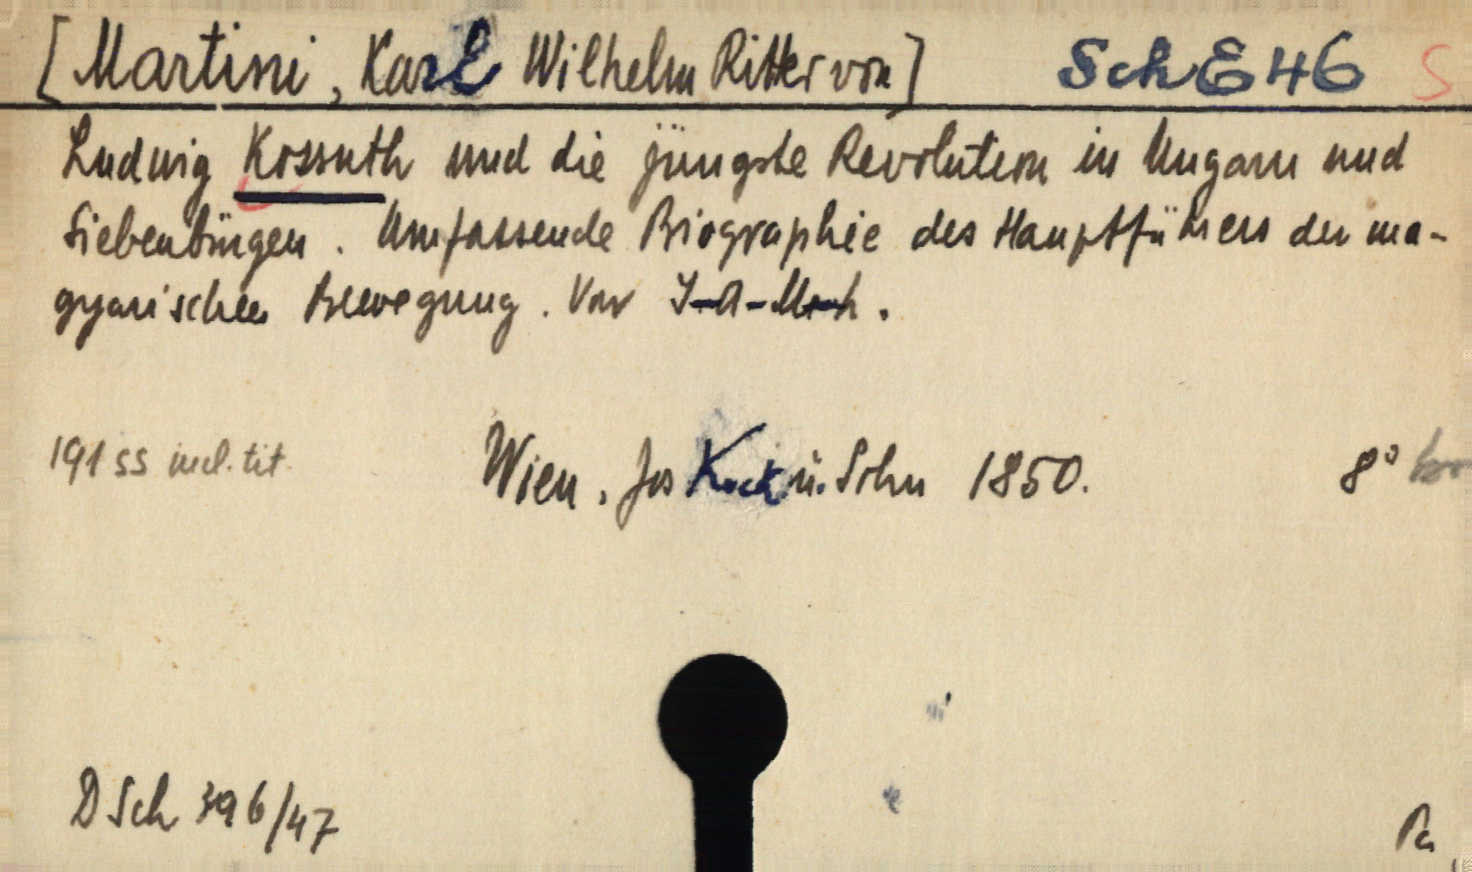 [Martini, Karl Wilhelm Ritter von] Sch E 46 S
Ludwig Kossuth und die jüngste Revolution in Ungarn und
Siebenbürgen. Umfassende Biographie des Hauptführers der ma-
gyarischen Bewegung. Von
191 SS incl. tit. Wien, Jos Keck u. Sohn 1850. 8°
D Sch 396/47